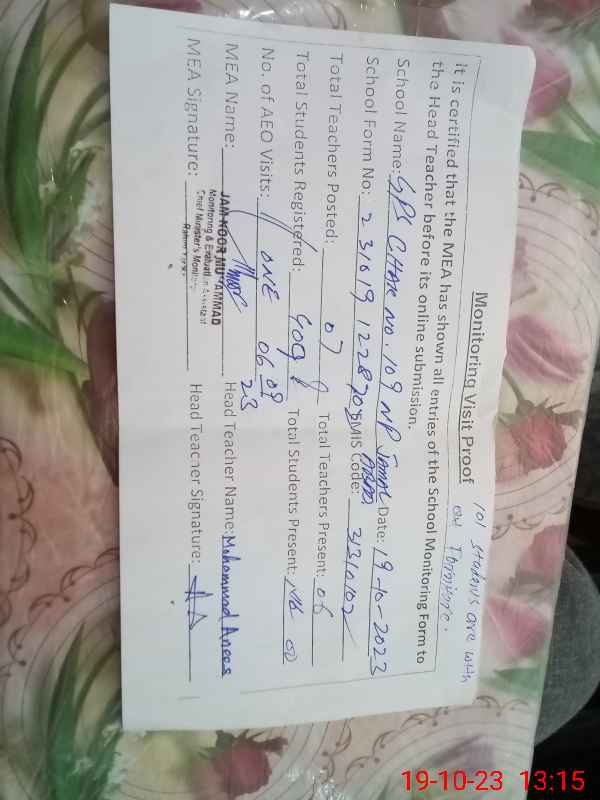 101 students are with
out Furniture.
Monitoring Visit Proof
It is certified that the MEA has shown all entries of the School Monitoring Form to
the Head Teacher before its online submission.
School Name: GPS CHAK NO. 109 NP Jamal Date: 19-10-2023
School Form No: 231019 122820 EMIS Code: 31310102
Total Teachers Posted: 07 Total Teachers Present: 06
Total Students Registered: Total Students Present:
No. of AEO Visits: ONE 06 09 23
MEA Name: JAM NOOR MUHAMMAD Head Teacher Name: Mohammad Anees
Monitoring & Evaluation Assistant
Chief Minister's
MEA Signature: Head Teacher Signature:
19-10-23 13:15